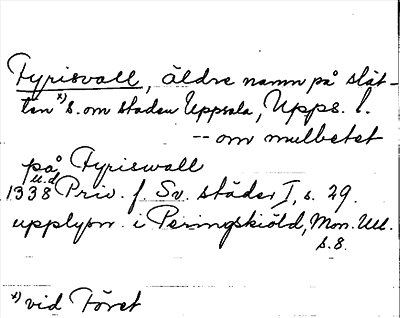 Fyrisvall, äldre namn på slät-
ten x) s. om staden Uppsala, Upps. l.
-- om mulbetet
på Fyriswall
u.d.
1338 Priv. f. Sv. städer I, s. 29.
upplyson. i Peringskiöld, Mon. Ull.
s. 8.
x) vid Föret